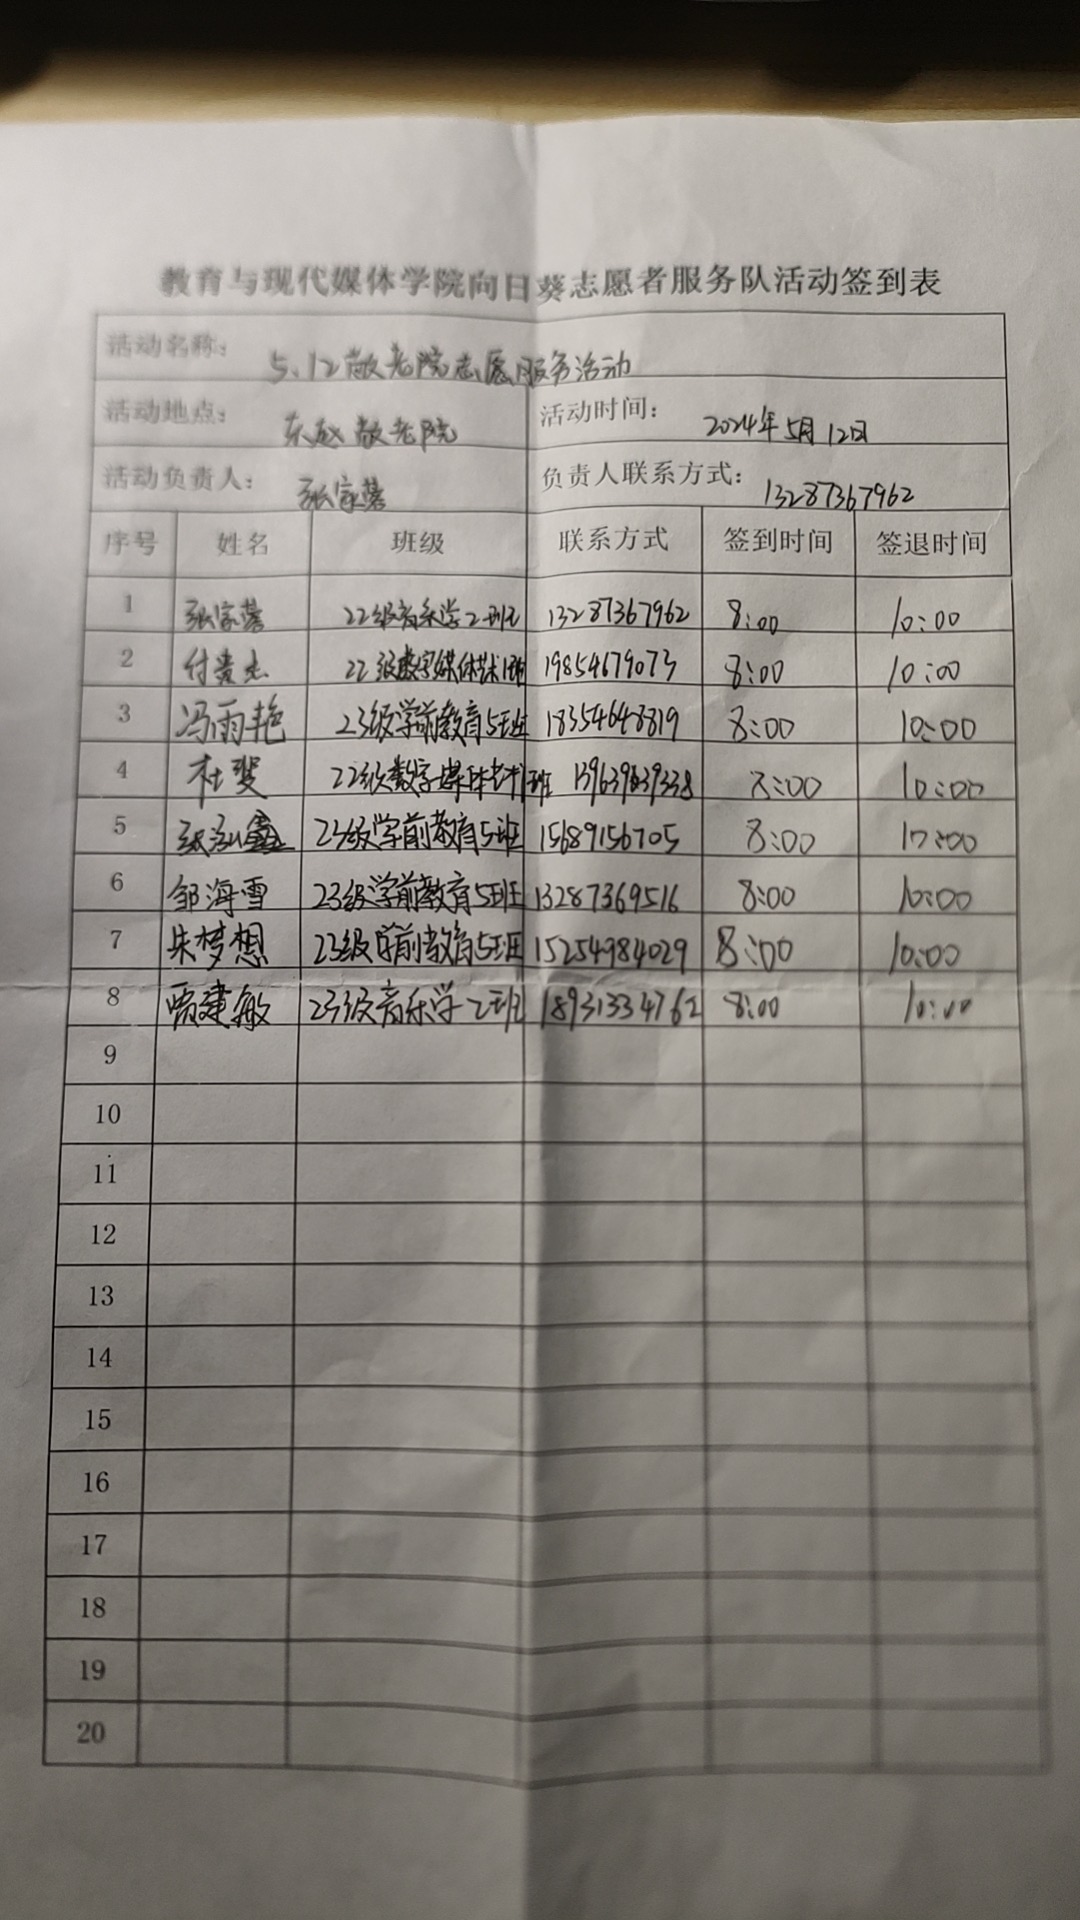 教育与现代媒体学院向日葵志愿者服务队活动签到表
活动名称: 5.12敬老院志愿服务活动
活动地点: 东赵敬老院 活动时间: 2024年5月12日
活动负责人: 张家蓉 负责人联系方式: 13287367962
序号 姓名 班级 联系方式 签到时间 签退时间
1 张家蓉 22级音乐学2班 13287367962 8:00 10:00
2 付贵杰 22级数字媒体艺术1班 19854679073 8:00 10:00
3 冯雨艳 23级学前教育5班 18354648819 8:00 10:00
4 杜斐 22级数字媒体艺术1班 8:00 10:00
5 张泓鑫 23级学前教育5班 15689156705 8:00 10:00
6 邹海雪 23级学前教育5班 13287369516 8:00 10:00
7 朱梦想 23级学前教育5班 15254984029 8:00 10:00
8 贾建敏 23级音乐学2班 18931334762 8:00 10:00
9
10
11
12
13
14
15
16
17
18
19
20